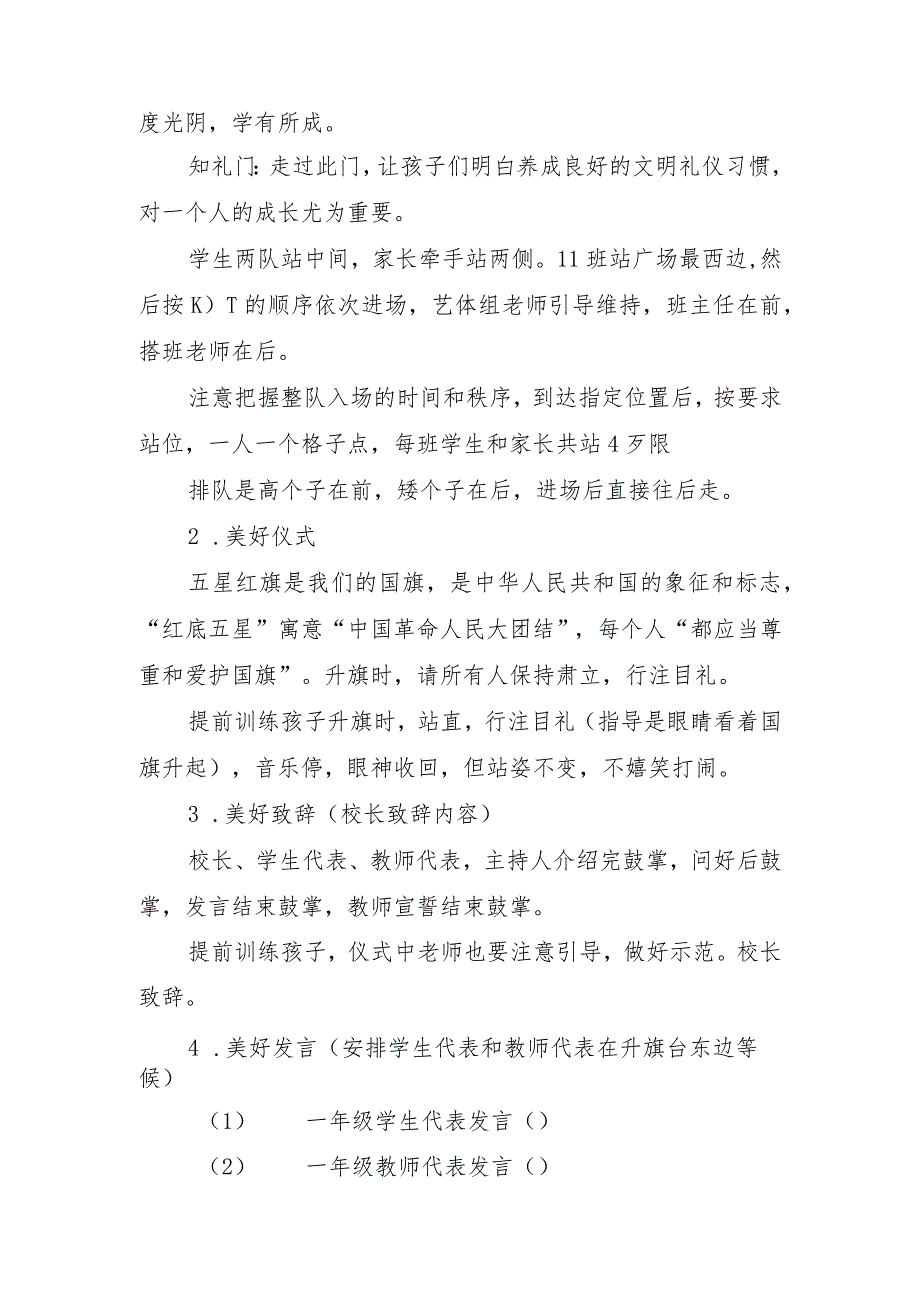 度光阴，学有所成。
知礼门：走过此门，让孩子们明白养成良好的文明礼仪习惯，
对一个人的成长尤为重要。
学生两队站中间，家长牵手站两侧。11 班站广场最西边,然
后按 K）T 的顺序依次进场，艺体组老师引导维持，班主任在前，
搭班老师在后。
注意把握整队入场的时间和秩序，到达指定位置后，按要求
站位，一人一个格子点，每班学生和家长共站 4 歹限
排队是高个子在前，矮个子在后，进场后直接往后走。
2 .美好仪式
五星红旗是我们的国旗，是中华人民共和国的象征和标志，
“红底五星”寓意“中国革命人民大团结”，每个人“都应当尊
重和爱护国旗”。升旗时，请所有人保持肃立，行注目礼。
提前训练孩子升旗时，站直，行注目礼（指导是眼睛看着国
旗升起），音乐停，眼神收回，但站姿不变，不嬉笑打闹。
3 .美好致辞（校长致辞内容）
校长、学生代表、教师代表，主持人介绍完鼓掌，问好后鼓
掌，发言结束鼓掌，教师宣誓结束鼓掌。
提前训练孩子，仪式中老师也要注意引导，做好示范。校长
致辞。
4 .美好发言（安排学生代表和教师代表在升旗台东边等
候）
（1） 一年级学生代表发言（）
（2） 一年级教师代表发言（）